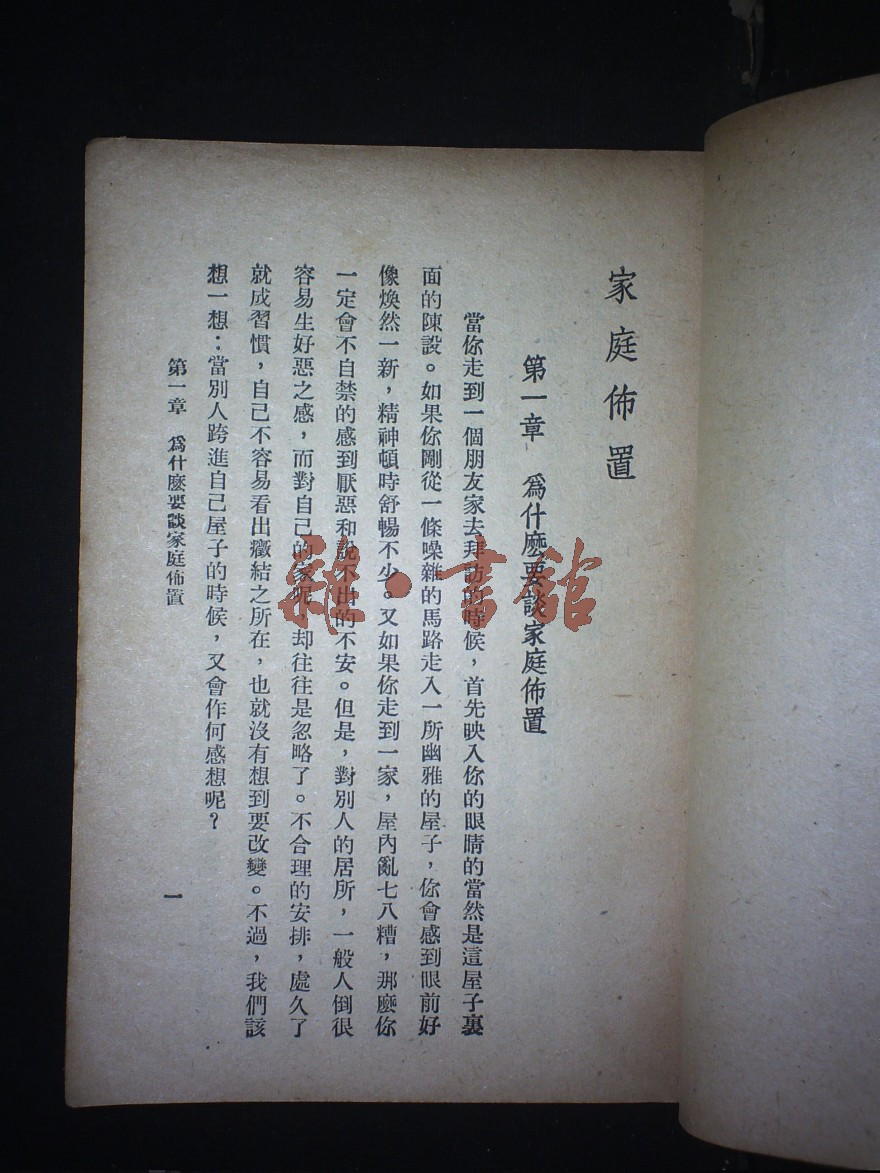 家庭佈置
第一章　爲什麽要談家庭佈置
當你走到一個朋友家去拜訪的時候，首先映入你的眼睛的當然是這屋子裏
面的陳設。如果你剛從一條噪雜的馬路走入一所幽雅的屋子，你會感到眼前好
像煥然一新，精神頓時舒暢不少。又如果你走到一家，屋內亂七八糟，那麽你
一定會不自禁的感到厭惡和說不出的不安。但是，對別人的居所，一般人倒很
容易生好惡之感，而對自己的家呢，却往往是忽略了。不合理的安排，處久了
就成習慣，自己不容易看出癥結之所在，也就沒有想到要改變。不過，我們該
想一想：當別人跨進自己屋子的時候，又會作何感想呢？
第一章　爲什麽要談家庭佈置
一
雜·書館